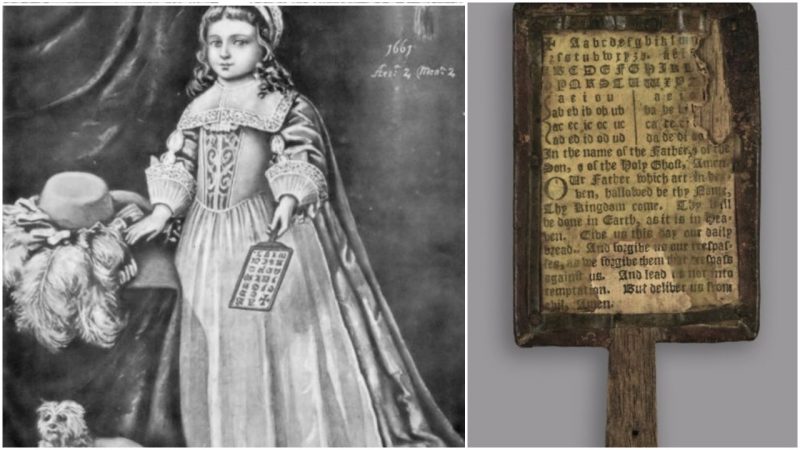 1661
Aabcdefghiklmn
rſstuvwxyz. &ei
ABCDEFGHIKL
PQRSTUWXYZ
a e i o u
ab eb ib ob ub ba be bi
ac ec ic oc uc ca ce ci
ad ed id od ud da de di do
In the name of the Father, & of the
Son, & of the Holy Ghost, Amen.
OUr Father which art in Hea-
ven, hallowed be thy Name,
Thy Kingdom come. Thy Will
be done in Earth, as it is in Hea-
ven. Give us this day our daily
bread. And forgive us our treſpaſ-
ſes, as we forgive them that treſpaſs
againſt us. And lead us not into
temptation. But deliver us from
evil, Amen.